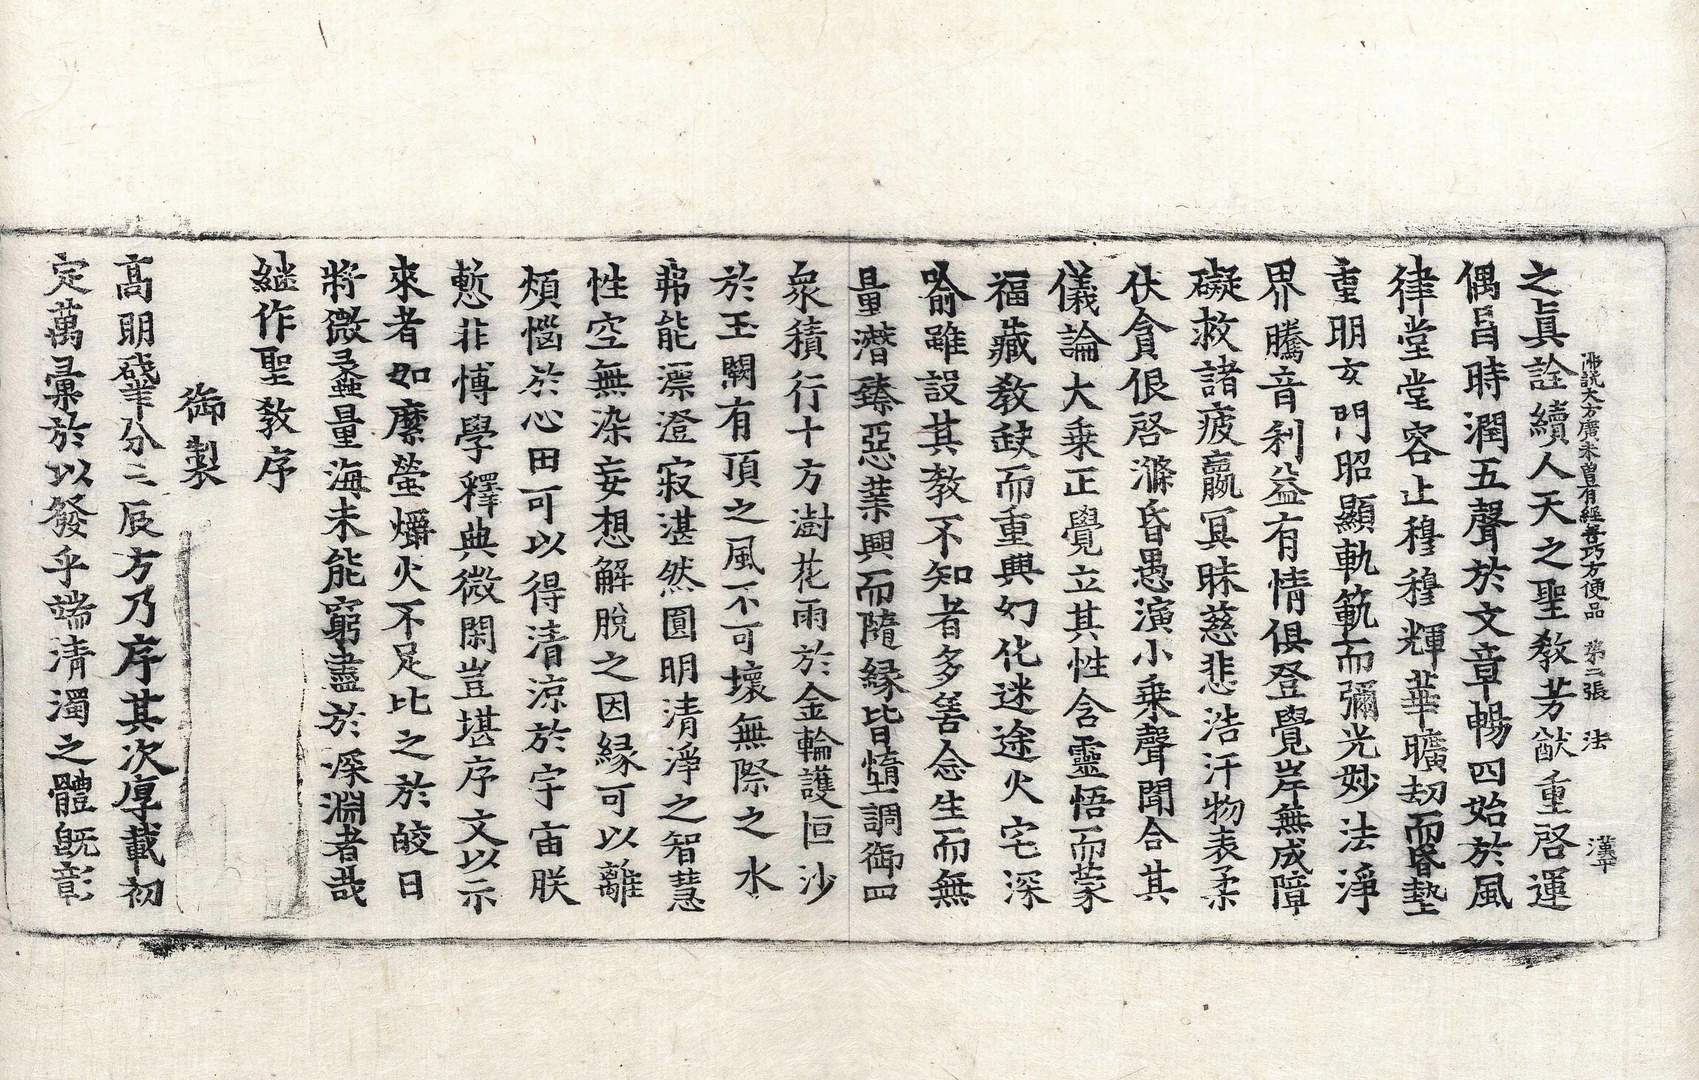 佛說大方廣未曾有經善巧方便品 第二張 法 漢平
之真詮續人天之聖敎芳猷重啓運
偶昌時潤五聲於文章暢四始於風
律堂堂容止穆穆輝華曠劫而昏墊
重明玄門昭顯軌範而彌光妙法淨
界騰音利益有情俱登覺岸無成障
礙救諸疲羸冥昧慈悲浩汗物表柔
伏貪佷啓滌昏愚演小乘聲聞合其
儀論大乘正覺立其性含靈悟而蒙
福藏敎缺而重興幻化迷途火宅深
喻雖設其敎不知者多善念生而無
量潛臻惡業興而隨緣皆墮調御四
衆積行十方澍花雨於金輪護恒沙
於玉闕有頂之風不可壞無際之水
弗能漂澄寂湛然圓明清淨之智慧
性空無染妄想解脫之因緣可以離
煩惱於心田可以得清涼於宇宙朕
慙非博學釋典微閑豈堪序文以示
來者如縻螢爝火不足比之於皎日
將微蠡量海未能窮盡於深淵者哉
繼作聖敎序
御製
高明肇分三辰方乃序其次厚載初
定萬彙於以發乎端清濁之體旣彰